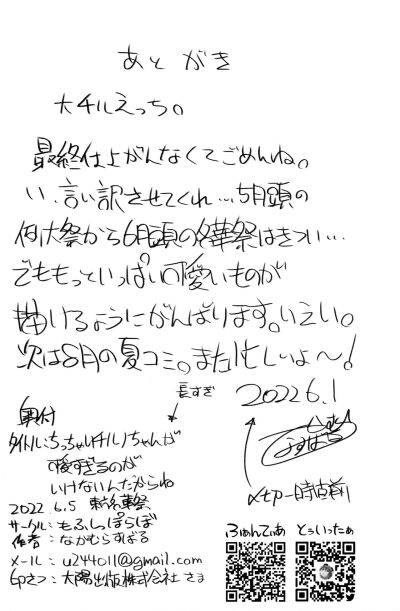 あとがき
大チルえっち。
最終仕上がんなくてごめんね。
い、言い訳させてくれ…5月頭の
例大祭から6月頭の名華祭はきつい…
でももっといっぱい可愛いものが
描けるようにがんばります。いえい。
次は8月の夏コミ。また忙しいよ〜!
2022.6.1
長すぎ
奥付
タイトル:ちっちゃいチルノちゃんが
可愛すぎるのが
いけないんだからね
2022.6.5 東方名華祭
サークル:もふしっぽらぼ
作者:なかむらすばる
メール:u244011@gmail.com
印さつ:大陽出版株式会社さま
ふぁんてぃあ
とぅいったぁ